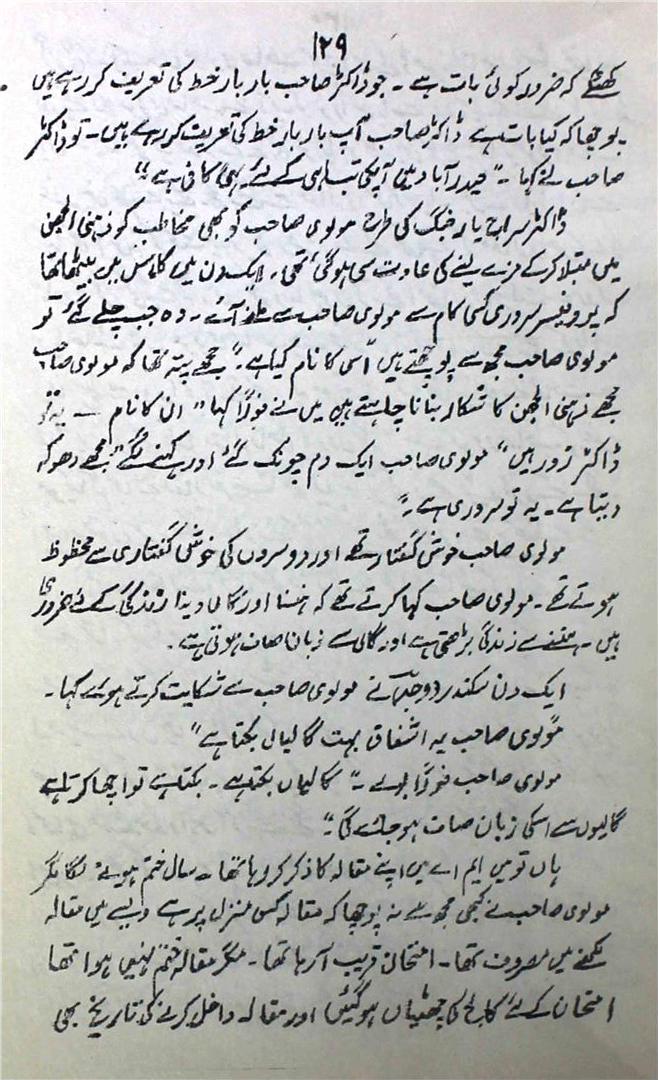 ۱۲۹
کھٹکے کہ ضرور کوئی بات ہے ۔ جو ڈاکٹر صاحب بار بار خط کی تعریف کر رہے ہیں
پوچھا کہ کیا بات ہے ڈاکٹر صاحب آپ بار بار خط کی تعریف کر رہے ہیں ۔ تو ڈاکٹر
صاحب نے کہا ۔ " حیدرآباد میں آپکی تباہی کے لئے یہی کافی ہے "
ڈاکٹر سراج یار جنگ کی طرح مولوی صاحب کو بھی مخاطب کو ذہنی الجھن
میں مبتلا کر کے مزے لینے کی عادت سی ہو گئی تھی ۔ ایک دن میں کلاس میں بیٹھا تھا
کہ پروفیسر سروری کسی کام سے مولوی صاحب سے ملنے آئے ۔ وہ جب چلے گئے تو
مولوی صاحب مجھ سے پوچھتے ہیں " اسی کا نام کیا ہے ۔ " مجھے پتہ تھا کہ مولوی صاحب
مجھے ذہنی الجھن کا شکار بنانا چاہتے ہیں میں نے فوراً کہا " ان کا نام — یہ تو
ڈاکٹر زور ہیں " مولوی صاحب ایک دم چونک گئے اور کہنے لگے " مجھے دھوکہ
دیتا ہے ۔ یہ تو سروری ہے ۔ "
مولوی صاحب خوش گفتار تھے اور دوسروں کی خوش گفتاری سے محظوظ
ہوتے تھے ۔ مولوی صاحب کہا کرتے تھے کہ ہنسنا اور گالی دینا زندگی کے لئے ضروری
ہیں ۔ ہنسنے سے زندگی بڑھتی ہے اور گالی سے زبان صاف ہوتی ہے ۔
ایک دن سکندر وجد نے مولوی صاحب سے شکایت کرتے ہوئے کہا ۔
" مولوی صاحب یہ اشفاق بہت گالیاں بکتا ہے "
مولوی صاحب فوراً بولے ۔ " گالیاں بکتا ہے ۔ بکتا ہے تو اچھا کرتا ہے
گالیوں سے اسکی زبان صاف ہو جائے گی ۔ "
ہاں تو میں ایم اے میں اپنے مقالہ کا ذکر کر رہا تھا ۔ سال ختم ہونے لگا مگر
مولوی صاحب نے کبھی مجھ سے نہ پوچھا کہ مقالہ کس منزل پر ہے ویسے میں مقالہ
لکھنے میں مصروف تھا ۔ امتحان قریب آ رہا تھا ۔ مگر مقالہ ختم نہیں ہوا تھا
امتحان کے لئے کالج کی چھٹیاں ہو گئیں اور مقالہ داخل کرنے کی تاریخ بھی